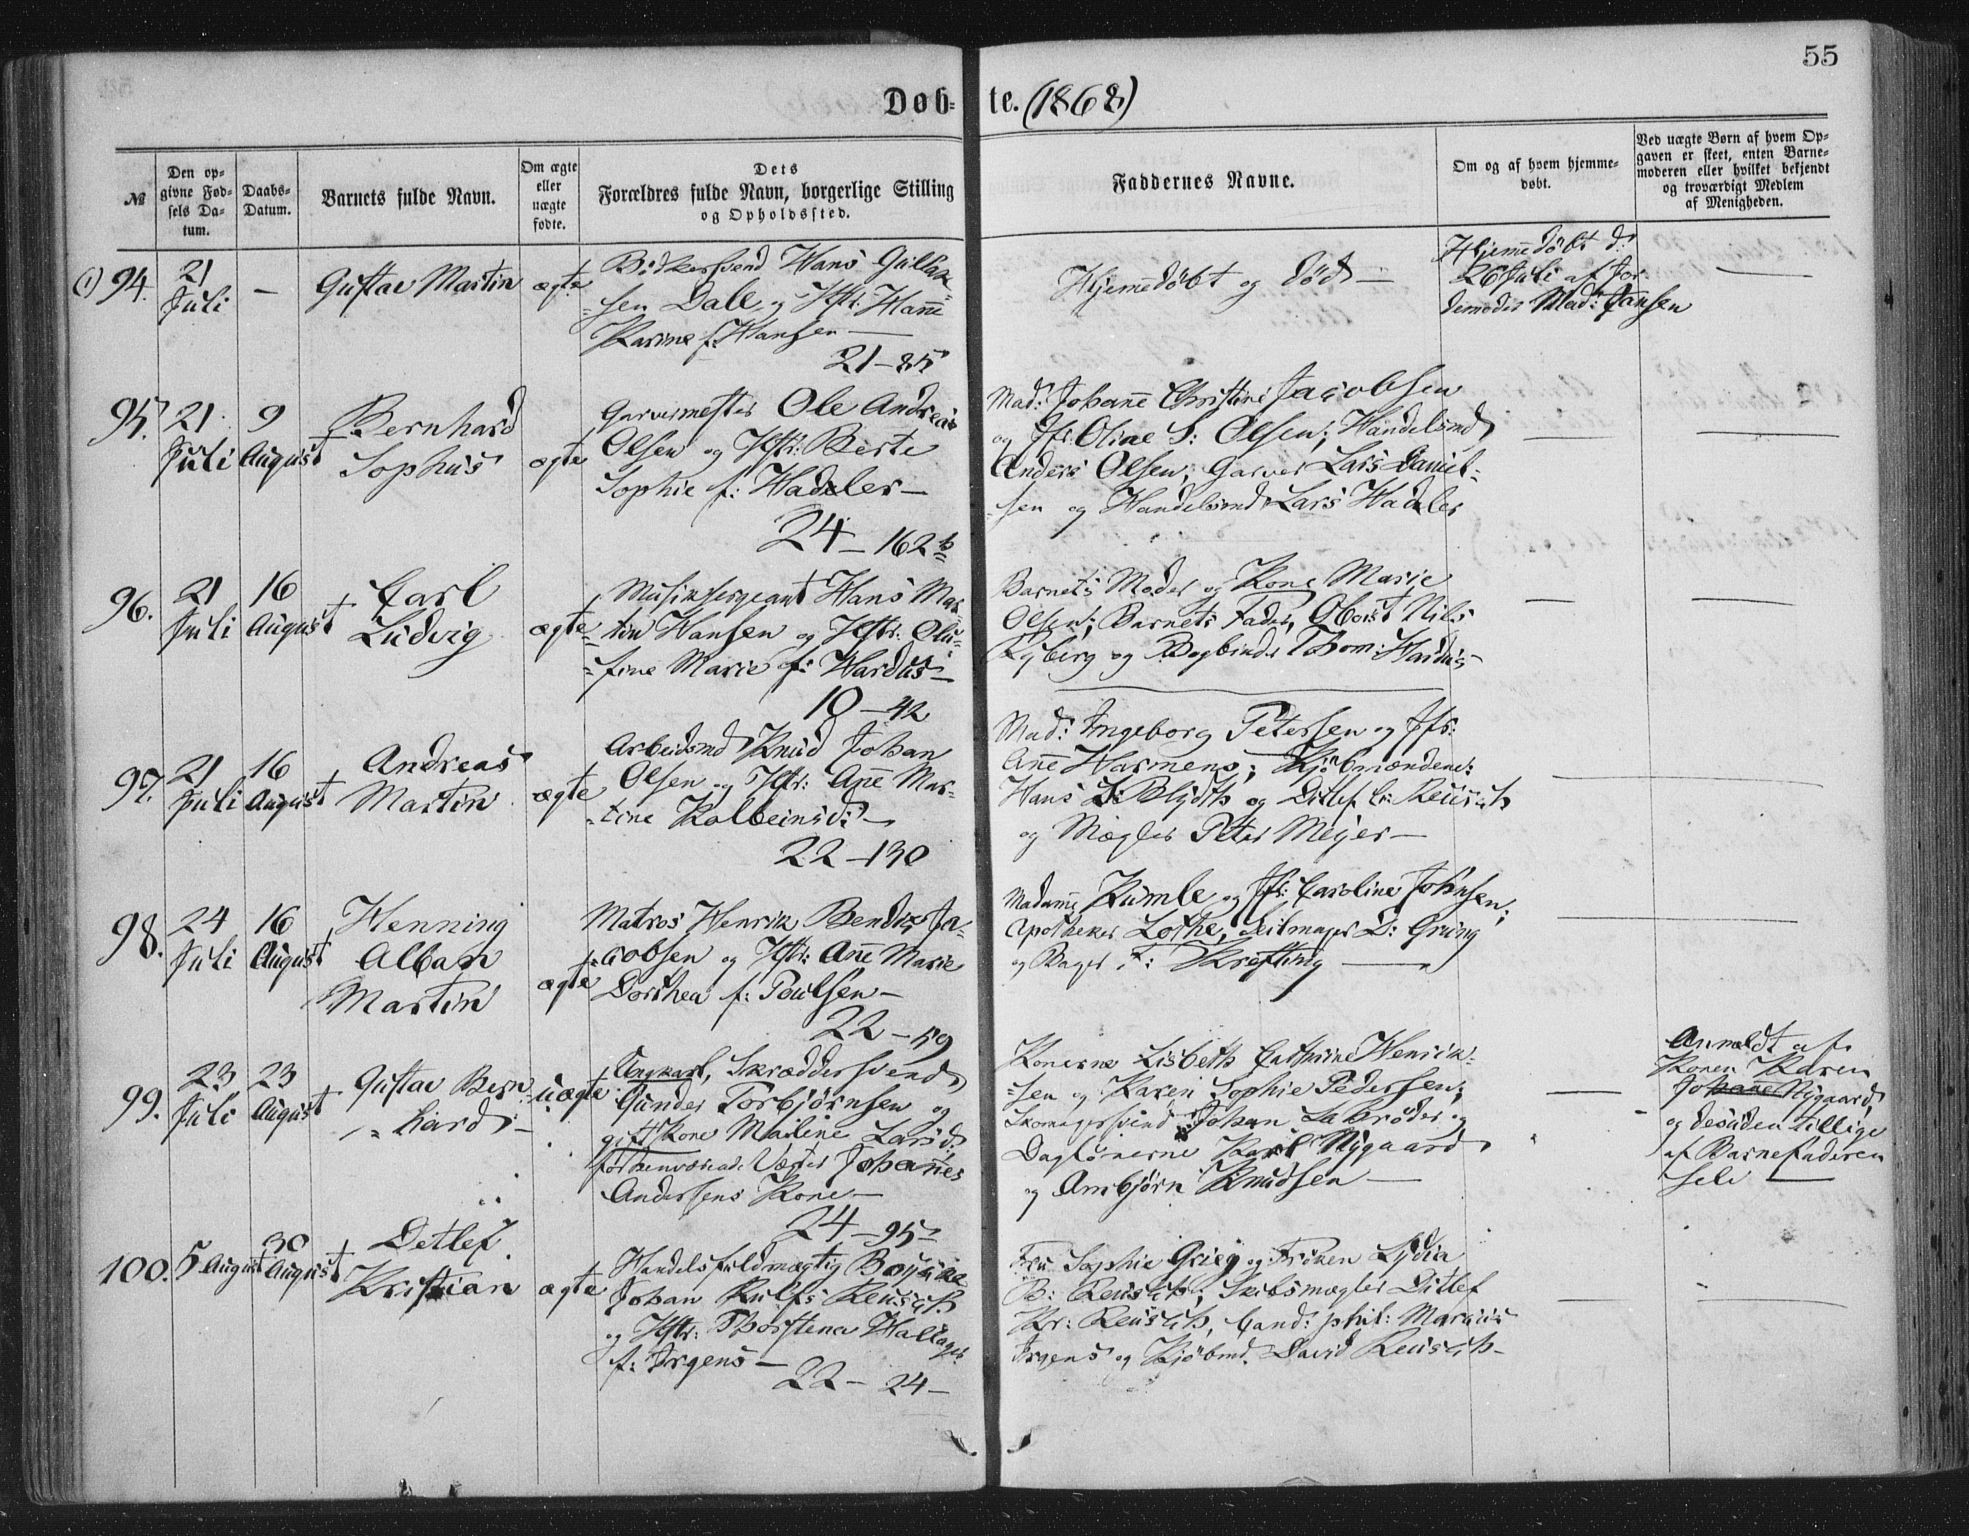 55
Døb-te. (1868)
№
Den opgivne Fødsels Datum.
Daabs-Datum.
Barnets fulde Navn.
Om ægte eller uægte fødte.
Dets Forældres fulde Navn, borgerlige Stilling og Opholdssted.
Faddernes Navne.
Om og af hvem hjemmedøbt.
Ved uægte Børn af hvem Opgaven er skeet, enten Barnemoderen eller hvilket bekjendt og troværdigt Medlem af Menigheden.
94.
21 Juli
—
Gustav Martin
ægte
Bødkersvend Hans Gullak=
=sen Dale og Hstr: Hanne
Karine f. Hansen —
21-85
Hjemmedøbt og død —
Hjemmedøbt d:
26 Juli af Jor
demoder Mad: Jansen
—
95.
21 Juli
9 August
Bernhard
Sophus
ægte
Garvermester Ole Andreas
Olsen og Hstr: Berte
Sophie f: Hadeler —
24-162 b
Mad: Johanne Christine Jacobsen
og Jfr: Oline S: Olsen; Handelsmd
Anders Olsen, Garver Lars Daniel-
=sen og Handelsmd Lars Hadeler
—
—
96.
21 Juli
16 August
Carl
Ludvig
ægte
Musiksergeant Hans Mar
=tin Hansen og Hstr: Olu=
=fine Marie f: Hardus —
10-42
Barnets Moder og Kone Marie
Olsen; Barnets Fader, Oboist Nils
Ryberg og Bogbinder Thom: Hardus —
—
—
97.
21 Juli
16 August
Andreas
Martin
ægte
Arbeidsmd Knud Johan
Olsen og Hstr: Ane Mar-
=tine Kolbeinsd: —
22-130
Mad: Ingeborg Petersen og Jfr:
Ane Harmens; Kjøbmændene:
Hans D: Blydth og Ditlef C: Reusch
og Mægler Peter Meyer —
—
—
98.
24 Juli
16 August
Henning
Alban
Martin
ægte
Matros Henrik Bendix Ja-
=cobsen og Hstr: Ane Marie
Dorthea f: Poulsen —
22-59
Madame Rumle og Jfr: Caroline Johnsen;
Apotheker Lothe, Seilmager D: Grung
og Bager F: Krefting —
—
—
99.
23 Juli
23 August
Gustav Bern-
=hard —
uægte
Ungkarl, Skræddersvend
Gunder Torbjørnsen og
gift Kone Malene Larsd:
forhenværende Vægter Johannes
Andersens Kone —
24-95
Konerne Lisbeth Cathrine Henrik-
=sen og Karen Sophie Pedersen;
Skomagersvend Johan Labröder og
Dagleierne Karl Nygaard
og Ambjörn Knudsen —
—
Anmeldt af
Konen Karen
Johanne Nygaard,
og desuden tillige
af Barnefaderen
selv —
100.
5 August
30 August
Detlef
Kristian
ægte
Handelsfuldmægtig Boyske
Johan Rulfs Reusch
og Hstr: Thorstena Hallager
f: Irgens —
22-24-
Fru Sophie Grieg og Frøken Lydia
B: Reusch; Skibsmægler Ditlef
Kr: Reusch, Cand: phil: Marcus
Irgens og Kjöbmd. David Reusch —
—
—